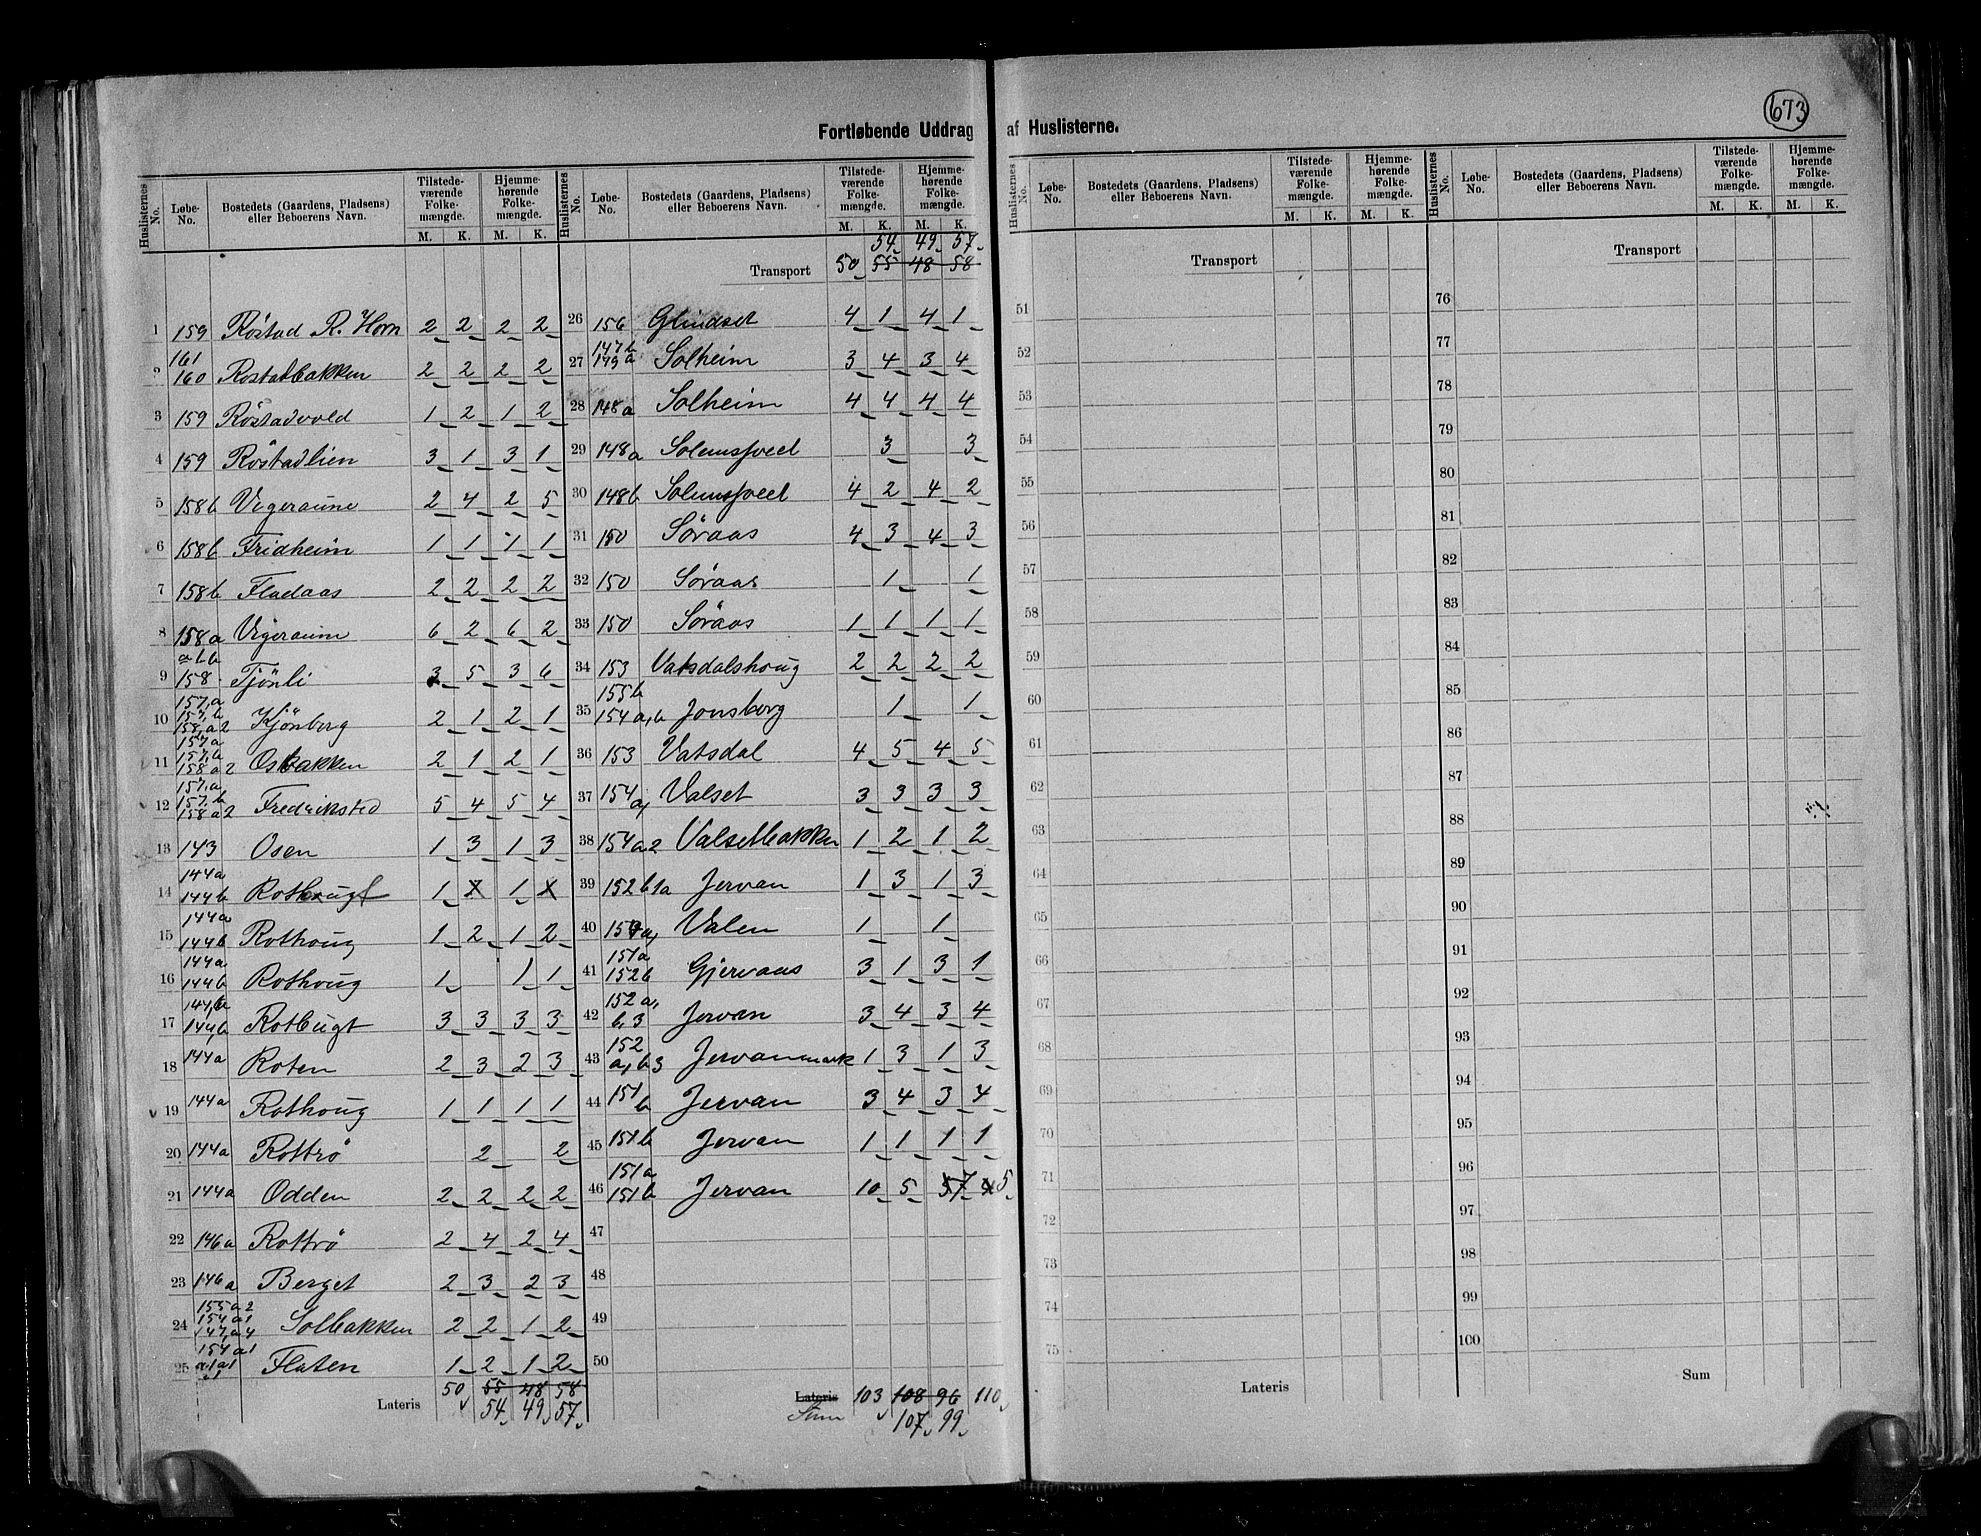 673
Fortløbende Uddrag af Huslisterne.
Huslisternes No. Løbe-No. Bostedets (Gaardens, Pladsens) eller Beboerens Navn. Tilstede-værende Folke-mængde. M. K. Hjemme-hørende Folke-mængde. M. K.
1 159 Röstad R. Horn 2 2 2 2
2 161 160 Röstadbakken 2 2 2 2
3 159 Röstadvold 1 2 1 2
4 159 Röstadlien 3 1 3 1
5 158b Vigeraune 2 4 2 5
6 158b Fridheim 1 1 1 1
7 158b Fladaas 2 2 2 2
8 158a Vigeraune 6 2 6 2
9 158 Tjönli 3 5 3 6
10 157,a 157,b 158,a2 Kjönberg 2 1 2 1
11 157a 157,b 158a2 Osbakken 2 1 2 1
12 157,a 157,b 158a2 Fredriksted 5 4 5 4
13 143 Osen 1 3 1 3
14 144a 144b Rothaugt 1 X 1 X
15 144a 144b Rothoug 1 2 1 2
16 144a 144b Rothoug 1 1 1
17 144b Rotbugt 3 3 3 3
18 144a Roten 2 3 2 3
19 144a Rothoug 1 1 1 1
20 144a Rottrö 2 2
21 144a Odden 2 2 2 2
22 146a Rottrö 2 4 2 4
23 146a Berget 2 3 2 3
24 155a2 154a1 147,a4 Solbakken 2 2 1 2
25 154a1 Flaten 1 2 1 2
Lateris 50 55 48 58
54 49 57
Huslisternes No. Løbe-No. Bostedets (Gaardens, Pladsens) eller Beboerens Navn. Tilstede-værende Folke-mængde. M. K. Hjemme-hørende Folke-mængde. M. K.
54 49 57
Transport 50 55 48 58
26 156 Glindset 4 1 4 1
27 147b 149a Solheim 3 4 3 4
28 148a Solheim 4 4 4 4
29 148a Solemsfveet 3 3
30 148b Solemsfveet 4 2 4 2
31 150 Söraas 4 3 4 3
32 150 Söraas 1 1
33 150 Söraas 1 1 1 1
34 153 Vatsdalshoug 2 2 2 2
35 155b 154a,b Jonsberg 1 1
36 153 Vatsdal 4 5 4 5
37 154a, Valset 3 3 3 3
38 154a2 Valsetbakken 1 2 1 2
39 152b1a Jervan 1 3 1 3
40 Valen 1 1
41 151a 152b Gjervaas 3 1 3 1
42 152a, b,3 Jervan 3 4 3 4
43 152 a,b3 Jervanmark 1 3 1 3
44 151b Jervan 3 4 3 4
45 151b Jervan 1 1 1 1
46 151a 151b Jervan 10 5 7 5
47
48
49
50
Lateris 103 108 96 110
Sum 107 99
Huslisternes No. Løbe-No. Bostedets (Gaardens, Pladsens) eller Beboerens Navn. Tilstede-værende Folke-mængde. M. K. Hjemme-hørende Folke-mængde. M. K.
Transport
51
52
53
54
55
56
57
58
59
60
61
62
63
64
65
66
67
68
69
70
71
72
73
74
75
Lateris
Huslisternes No. Løbe-No. Bostedets (Gaardens, Pladsens) eller Beboerens Navn. Tilstede-værende Folke-mængde. M. K. Hjemme-hørende Folke-mængde. M. K.
Transport
76
77
78
79
80
81
82
83
84
85
86
87
88
89
90
91
92
93
94
95
96
97
98
99
100
Sum